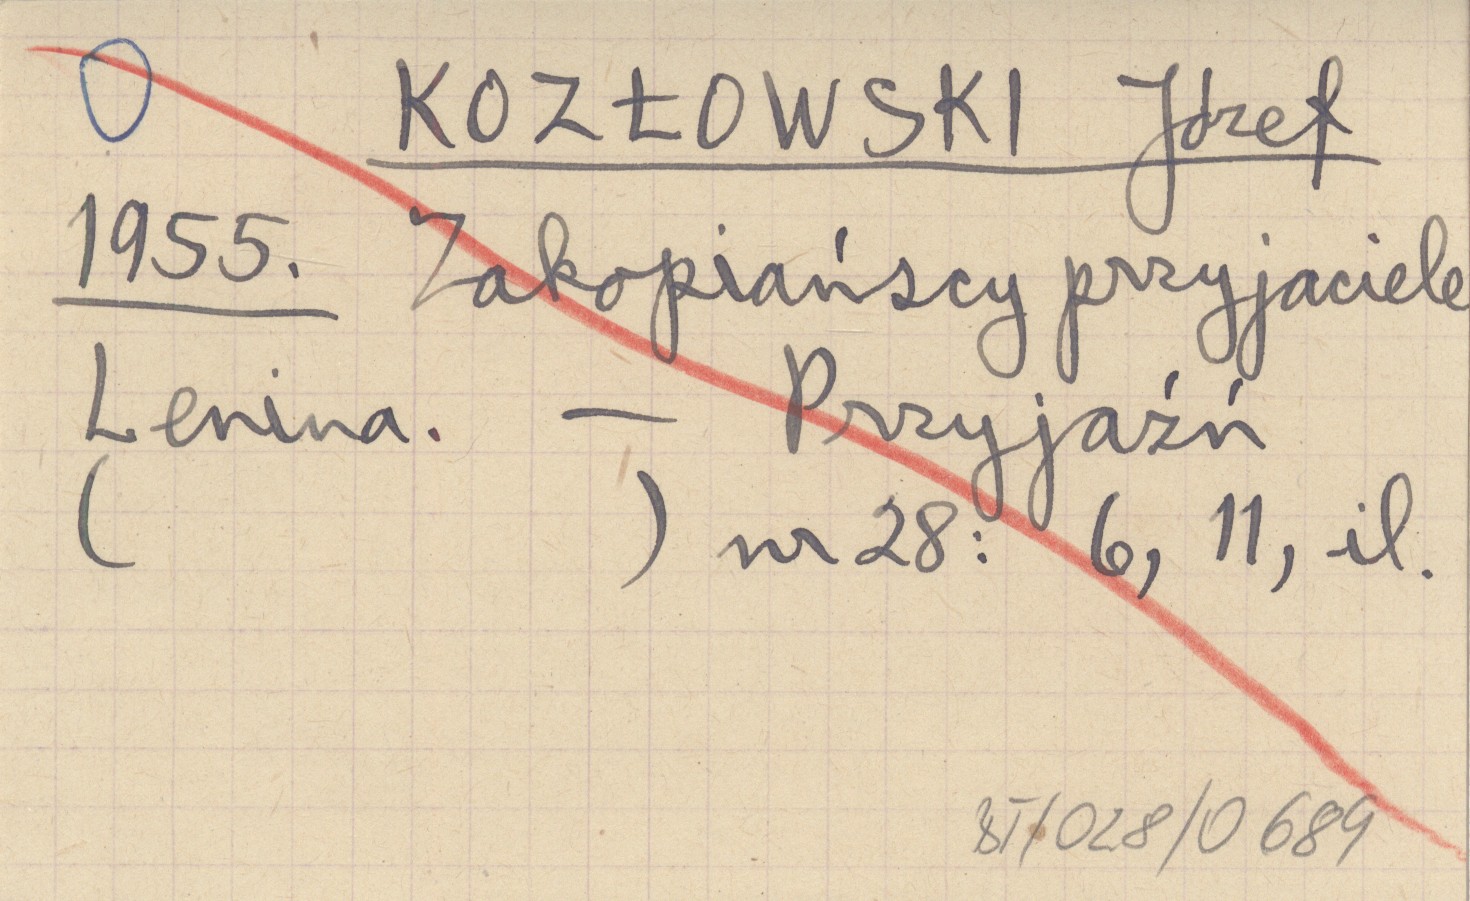 O KOZŁOWSKI Józef
1955. Zakopiańscy przyjaciele
Lenina. — Przyjaźń
( ) nr 28: 6, 11, il.
BT/028/0689